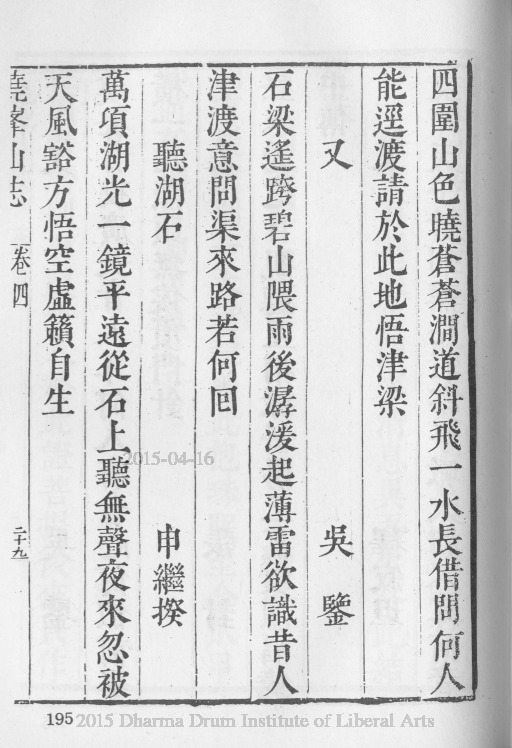 四圍山色曉蒼蒼澗道斜飛一水長借問何人
能逕渡請於此地悟津梁
又 吳鑒
石梁遙跨碧山隈雨後潺湲起薄雷欲識昔人
津渡意問渠來路若何回
聽湖石 申繼揆
萬項湖光一鏡平遠從石上聽無聲夜來忽被
天風豁方悟空虛籟自生
堯峯山志 卷四 二十九
2015-04-16
195
2015 Dharma Drum Institute of Liberal Arts